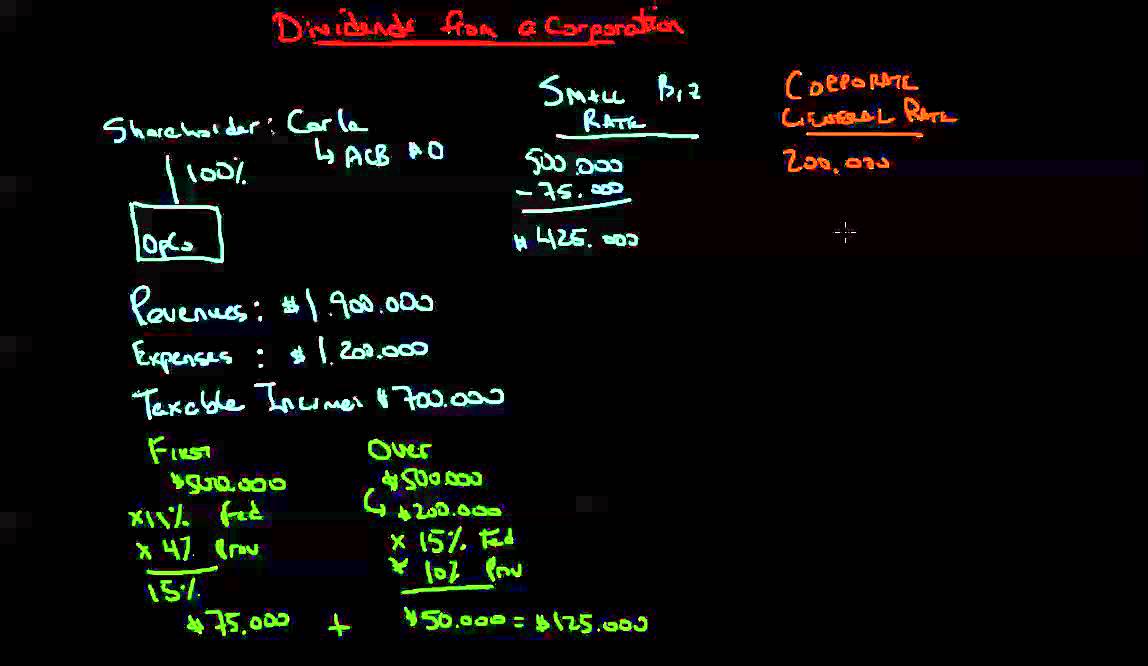 Dividends from a Corporation
Shareholder: Carla
↳ ACB $0
100%
OpCo
Small Biz
Rate
500.000
-75.000
$425.000
Corporate
General Rate
200.000
Revenues: $1.900.000
Expenses: $1.200.000
Taxable Income: $700.000
First
$500.000
x11% Fed
x 4% Prov
15%
$75.000 +
Over
$500.000
↳ $200.000
x 15% Fed
x 10% Prov
$50.000 = $125.000